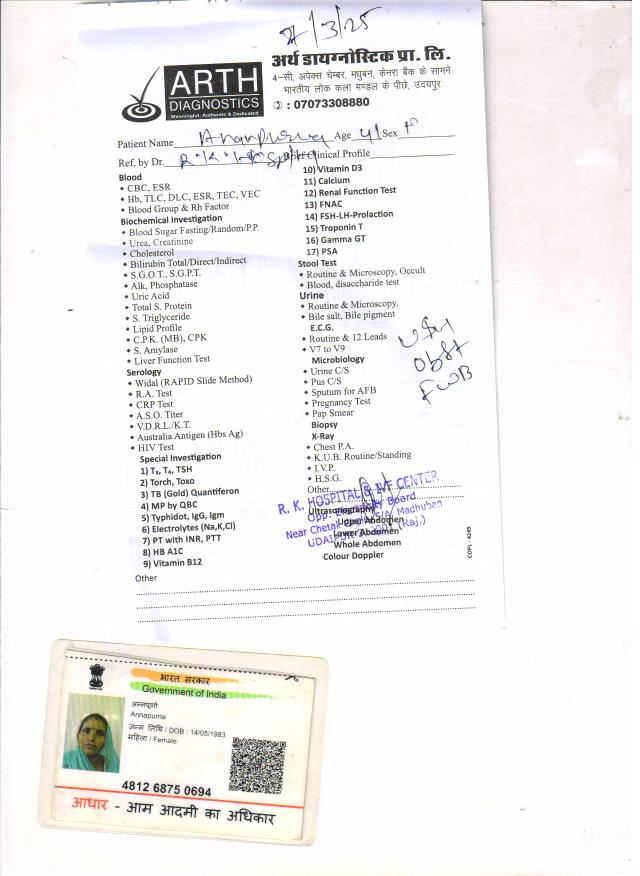 7/3/25
अर्थ डायग्नोस्टिक प्रा. लि.
ARTH
DIAGNOSTICS
Meaningful, Authentic & Dedicated
4-सी, अपेक्स चेम्बर, मधुबन, केनरा बैंक के सामने
भारतीय लोक कला मण्डल के पीछे, उदयपुर
: 07073308880
Patient Name Annapurna Age 41 Sex F
Ref, by Dr. R.K. Hospital Brief Clinical Profile
Blood
CBC, ESR
Hb, TLC, DLC, ESR, TEC, VEC
Blood Group & Rh Factor
Biochemical Investigation
Blood Sugar Fasting/Random/P.P.
Urea, Creatinine
Cholesterol
Bilirubin Total/Direct/Indirect
S.G.O.T., S.G.P.T.
Alk, Phosphatase
Uric Acid
Total S. Protein
S. Triglyceride
Lipid Profile
C.P.K. (MB), CPK
S. Amylase
Liver Function Test
Serology
Widal (RAPID Slide Method)
R.A. Test
CRP Test
A.S.O. Titer
V.D.R.L./K.T.
Australia Antigen (Hbs Ag)
HIV Test
Special Investigation
1) T₃, T₄, TSH
2) Torch, Toxo
3) TB (Gold) Quantiferon
4) MP by QBC
5) Typhidot, IgG, Igm
6) Electrolytes (Na,K,Cl)
7) PT with INR, PTT
8) HB A1C
9) Vitamin B12
10) Vitamin D3
11) Calcium
12) Renal Function Test
13) FNAC
14) FSH-LH-Prolaction
15) Troponin T
16) Gamma GT
17) PSA
Stool Test
Routine & Microscopy, Occult
Blood, disaccharide test
Urine
Routine & Microscopy,
Bile salt, Bile pigment
E.C.G.
Routine & 12 Leads
V7 to V9
Microbiology
Urine C/S
Pus C/S
Sputum for AFB
Pregnancy Test
Pap Smear
Biopsy
X-Ray
Chest P.A.
K.U.B. Routine/Standing
I.V.P.
H.S.G.
Other
Ultrasonography
Upper Abdomen
Lower Abdomen
Whole Abdomen
Colour Doppler
USG
Obst
FWB
R. K. HOSPITAL & IVF CENTER
Near Chetak
Madhuban
UDAIPUR
(Raj.)
COPL - 4249
Other
भारत सरकार
Government of India
अन्नपूर्णा
Annapurna
जन्म तिथि / DOB : 14/05/1983
महिला / Female
4812 6875 0694
आधार - आम आदमी का अधिकार